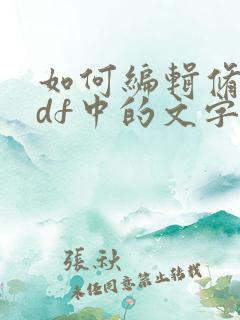 如何编辑修
df中的文字
張秋
未经同意禁止转载